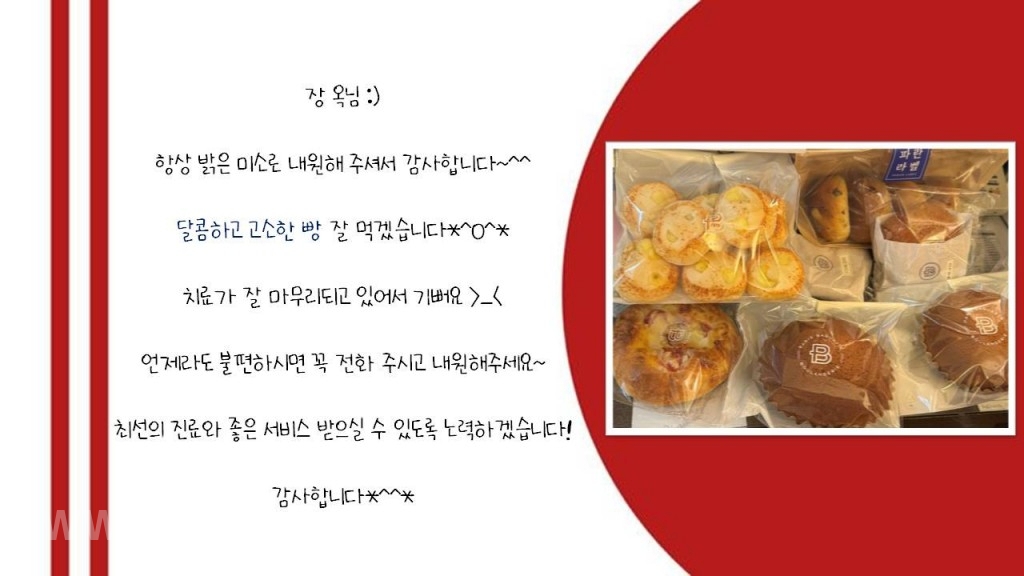 장 옥님 :)
항상 밝은 미소로 내원해 주셔서 감사합니다~^^
달콤하고 고소한 빵 잘 먹겠습니다*^O^*
치료가 잘 마무리되고 있어서 기뻐요 >_<
언제라도 불편하시면 꼭 전화 주시고 내원해주세요~
최선의 진료와 좋은 서비스 받으실 수 있도록 노력하겠습니다!
감사합니다*^^*
파란
라벨
B
B